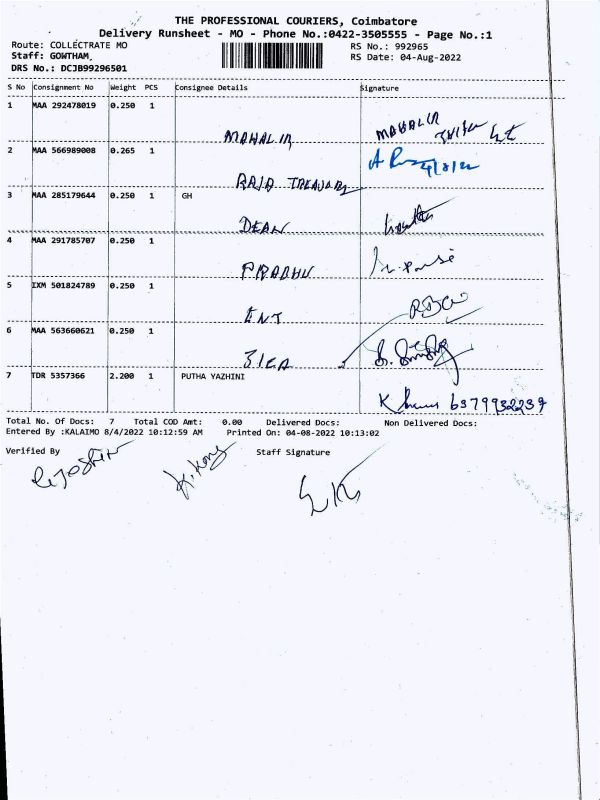 THE PROFESSIONAL COURIERS, Coimbatore
Delivery Runsheet - MO - Phone No.:0422-3505555 - Page No.:1
Route: COLLECTRATE MO RS No.: 992965
Staff: GOWTHAM, RS Date: 04-Aug-2022
DRS No.: DCJB99296501
S No Consignment No Weight PCS Consignee Details Signature
1 MAA 292478019 0.250 1
MAHALIR MAHALIR
2 MAA 566989008 0.265 1
4/8/22
3 MAA 285179644 0.250 1 GH
DEAN
4 MAA 291785707 0.250 1
PRADHU
5 IXM 501824789 0.250 1
ENT
6 MAA 563660621 0.250 1
7 TDR 5357366 2.200 1 PUTHA YAZHINI
6379932239
Total No. Of Docs: 7 Total COD Amt: 0.00 Delivered Docs: Non Delivered Docs:
Entered By :KALAIMO 8/4/2022 10:12:59 AM Printed On: 04-08-2022 10:13:02
Verified By Staff Signature